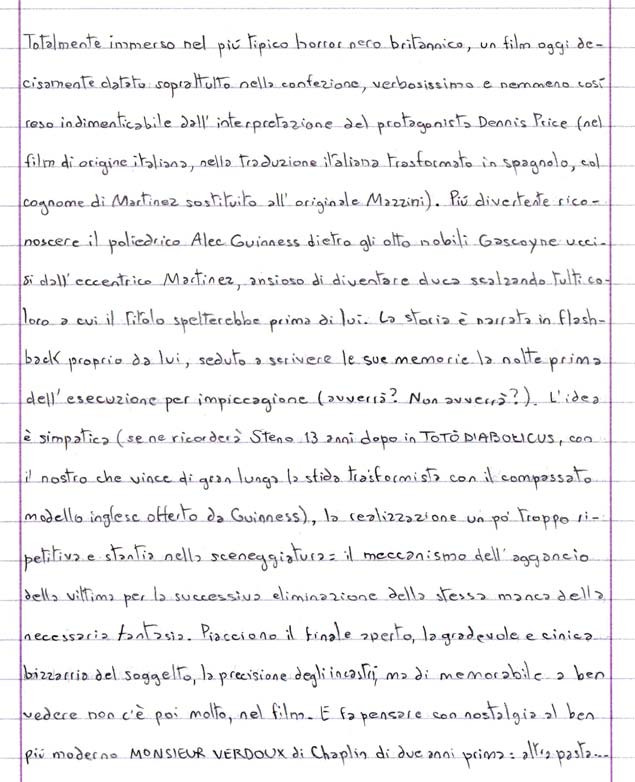 Totalmente immerso nel più tipico horror nero britannico, un film oggi de-
cisamente datato soprattutto nella confezione, verbosissimo e nemmeno così
reso indimenticabile dall'interpretazione del protagonista Dennis Price (nel
film di origine italiana, nella traduzione italiana trasformato in spagnolo, col
cognome di Martinez sostituito all'originale Mazzini). Più divertente rico-
noscere il poliedrico Alec Guinness dietro gli otto nobili Gascoyne ucci-
si dall'eccentrico Martinez, ansioso di diventare duca scalzando tutti co-
loro a cui il titolo spetterebbe prima di lui. La storia è narrata in flash-
back proprio da lui, seduto a scrivere le sue memorie la notte prima
dell'esecuzione per impiccagione (avverrà? Non avverrà?). L'idea
è simpatica (se ne ricorderà Steno 13 anni dopo in TOTÒ DIABOLICUS, con
il nostro che vince di gran lunga la sfida trasformista con il compassato
modello inglese offerto da Guinness), la realizzazione un po' troppo ri-
petitiva e stantia nella sceneggiatura: il meccanismo dell'aggancio
della vittima per la successiva eliminazione della stessa manca della
necessaria fantasia. Piacciono il finale aperto, la gradevole e cinica
bizzarria del soggetto, la precisione degli incastri, ma di memorabile a ben
vedere non c'è poi molto, nel film. E fa pensare con nostalgia al ben
più moderno MONSIEUR VERDOUX di Chaplin di due anni prima: altra pasta...